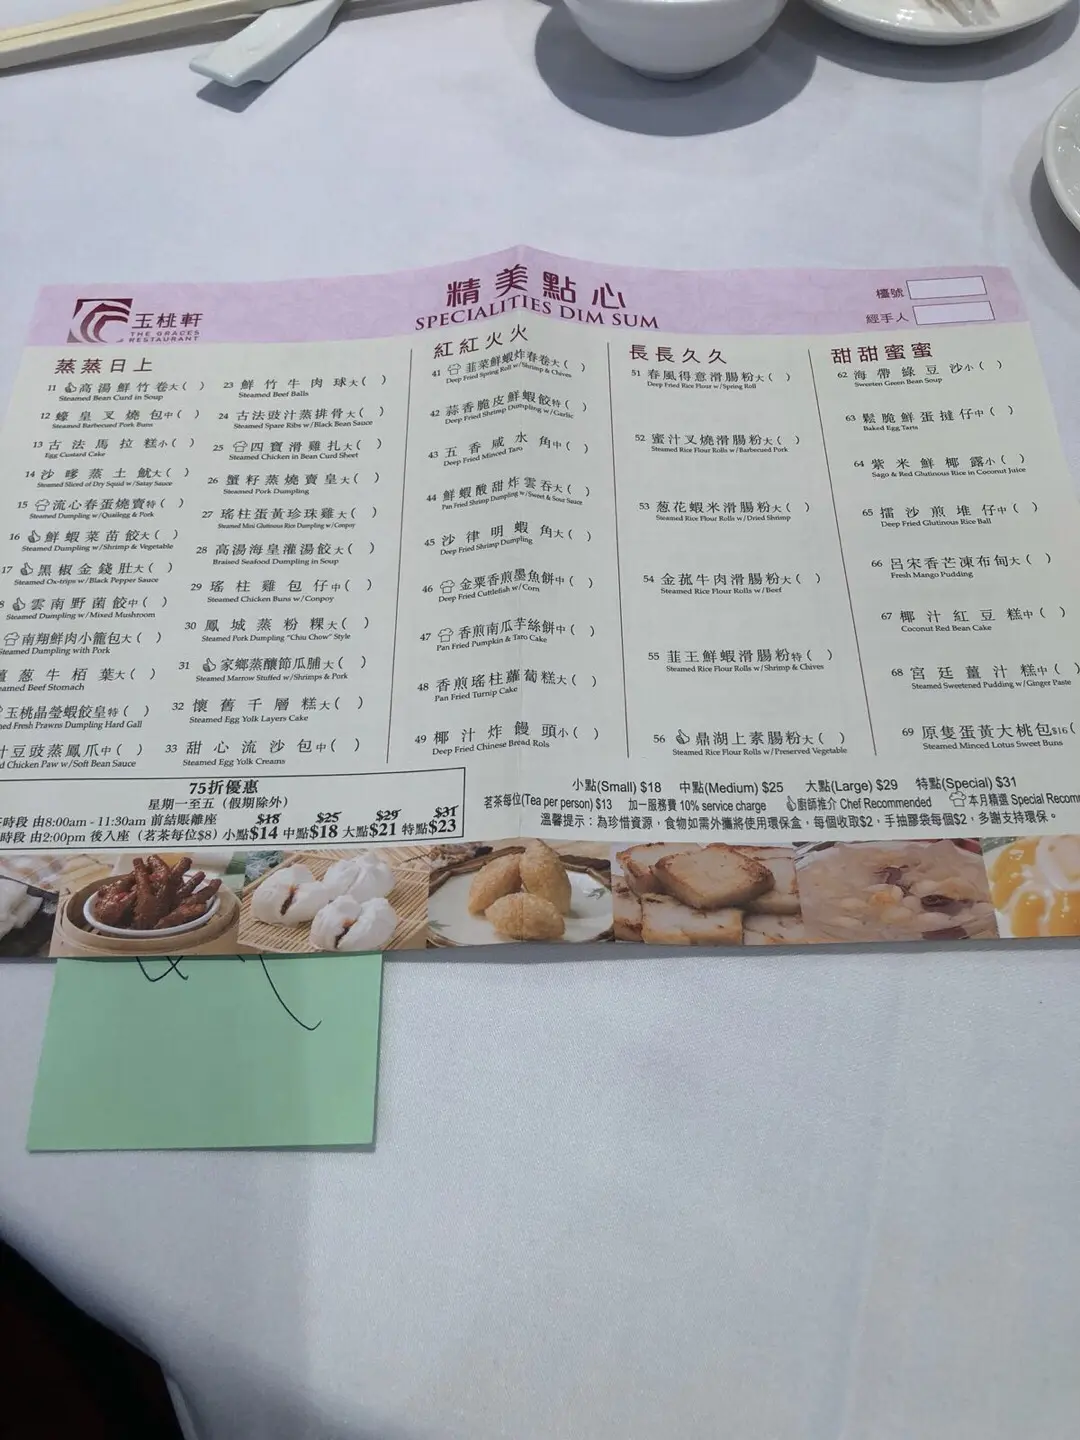 玉桃軒
THE GRACES
RESTAURANT
精美點心
SPECIALITIES DIM SUM
檯號
經手人
蒸蒸日上
11 高湯鮮竹卷大( )
Steamed Bean Curd in Soup
12 蠔皇叉燒包中( )
Steamed Barbecued Pork Buns
13 古法馬拉糕小( )
Egg Custard Cake
14 沙嗲蒸土魷大( )
Steamed Sliced of Dry Squid w/Satay Sauce
15 流心春蛋燒賣特( )
Steamed Dumpling w/Quailegg & Pork
16 鮮蝦菜苗餃大( )
Steamed Dumpling w/Shrimp & Vegetable
17 黑椒金錢肚大( )
Steamed Ox-trips w/Black Pepper Sauce
8 雲南野菌餃中( )
Steamed Dumpling w/Mixed Mushroom
南翔鮮肉小籠包大( )
Steamed Dumpling with Pork
薑葱牛栢葉大( )
eamed Beef Stomach
玉桃晶瑩蝦餃皇特( )
ed Fresh Prawns Dumpling Hard Gall
汁豆豉蒸鳳爪中( )
d Chicken Paw w/Soft Bean Sauce
23 鮮竹牛肉球大( )
Steamed Beef Balls
24 古法豉汁蒸排骨大( )
Steamed Spare Ribs w/Black Bean Sauce
25 四寶滑雞扎大( )
Steamed Chicken in Bean Curd Sheet
26 蟹籽蒸燒賣皇大( )
Steamed Pork Dumpling
27 瑤柱蛋黃珍珠雞大( )
Steamed Mini Glutinous Rice Dumpling w/Conpoy
28 高湯海皇灌湯餃大( )
Braised Seafood Dumpling in Soup
29 瑤柱雞包仔中( )
Steamed Chicken Buns w/Conpoy
30 鳳城蒸粉粿大( )
Steamed Pork Dumpling "Chiu Chow" Style
31 家鄉蒸釀節瓜脯大( )
Steamed Marrow Stuffed w/Shrimps & Pork
32 懷舊千層糕大( )
Steamed Egg Yolk Layers Cake
33 甜心流沙包中( )
Steamed Egg Yolk Creams
紅紅火火
41 韮菜鮮蝦炸春卷大( )
Deep Fried Spring Roll w/Shrimp & Chives
42 蒜香脆皮鮮蝦餃特( )
Deep Fried Shrimp Dumpling w/Garlic
43 五香咸水角中( )
Deep Fried Minced Taro
44 鮮蝦酸甜炸雲吞大( )
Pan Fried Shrimp Dumpling w/Sweet & Sour Sauce
45 沙律明蝦角大( )
Deep Fried Shrimp Dumpling
46 金粟香煎墨魚餅中( )
Deep Fried Cuttlefish w/Corn
47 香煎南瓜芋絲餅中( )
Pan Fried Pumpkin & Taro Cake
48 香煎瑤柱蘿蔔糕大( )
Pan Fried Turnip Cake
49 椰汁炸饅頭小( )
Deep Fried Chinese Bread Rols
長長久久
51 春風得意滑腸粉大( )
Deep Fried Rice Flour w/Spring Roll
52 蜜汁叉燒滑腸粉大( )
Steamed Rice Flour Rolls w/Barbecued Pork
53 葱花蝦米滑腸粉大( )
Steamed Rice Flour Rolls w/Dried Shrimp
54 金菰牛肉滑腸粉大( )
Steamed Rice Flour Rolls w/Beef
55 韮王鮮蝦滑腸粉特( )
Steamed Rice Flour Rolls w/Shrimp & Chives
56 鼎湖上素腸粉大( )
Steamed Rice Flour Rolls w/Preserved Vegetable
甜甜蜜蜜
62 海帶綠豆沙小( )
Sweeten Green Bean Soup
63 鬆脆鮮蛋撻仔中( )
Baked Egg Tarts
64 紫米鮮椰露小( )
Sago & Red Glutinous Rice in Coconut Juice
65 擂沙煎堆仔中( )
Deep Fried Glutinous Rice Ball
66 呂宋香芒凍布甸大( )
Fresh Mango Pudding
67 椰汁紅豆糕中( )
Coconut Red Bean Cake
68 宮廷薑汁糕中( )
Steamed Sweetened Pudding w/Ginger Paste
69 原隻蛋黃大桃包$16(
Steamed Minced Lotus Sweet Buns
75折優惠
星期一至五 (假期除外)
時段 由8:00am - 11:30am 前結賬離座 $18 $25 $29 $31
時段 由2:00pm 後入座 (茗茶每位$8) 小點$14 中點$18 大點$21 特點$23
小點(Small) $18 中點(Medium) $25 大點(Large) $29 特點(Special) $31
茗茶每位(Tea per person) $13 加一服務費 10% service charge 廚師推介 Chef Recommended 本月精選 Special Recom
溫馨提示：為珍惜資源，食物如需外攜將使用環保盒，每個收取$2，手抽膠袋每個$2，多謝支持環保。